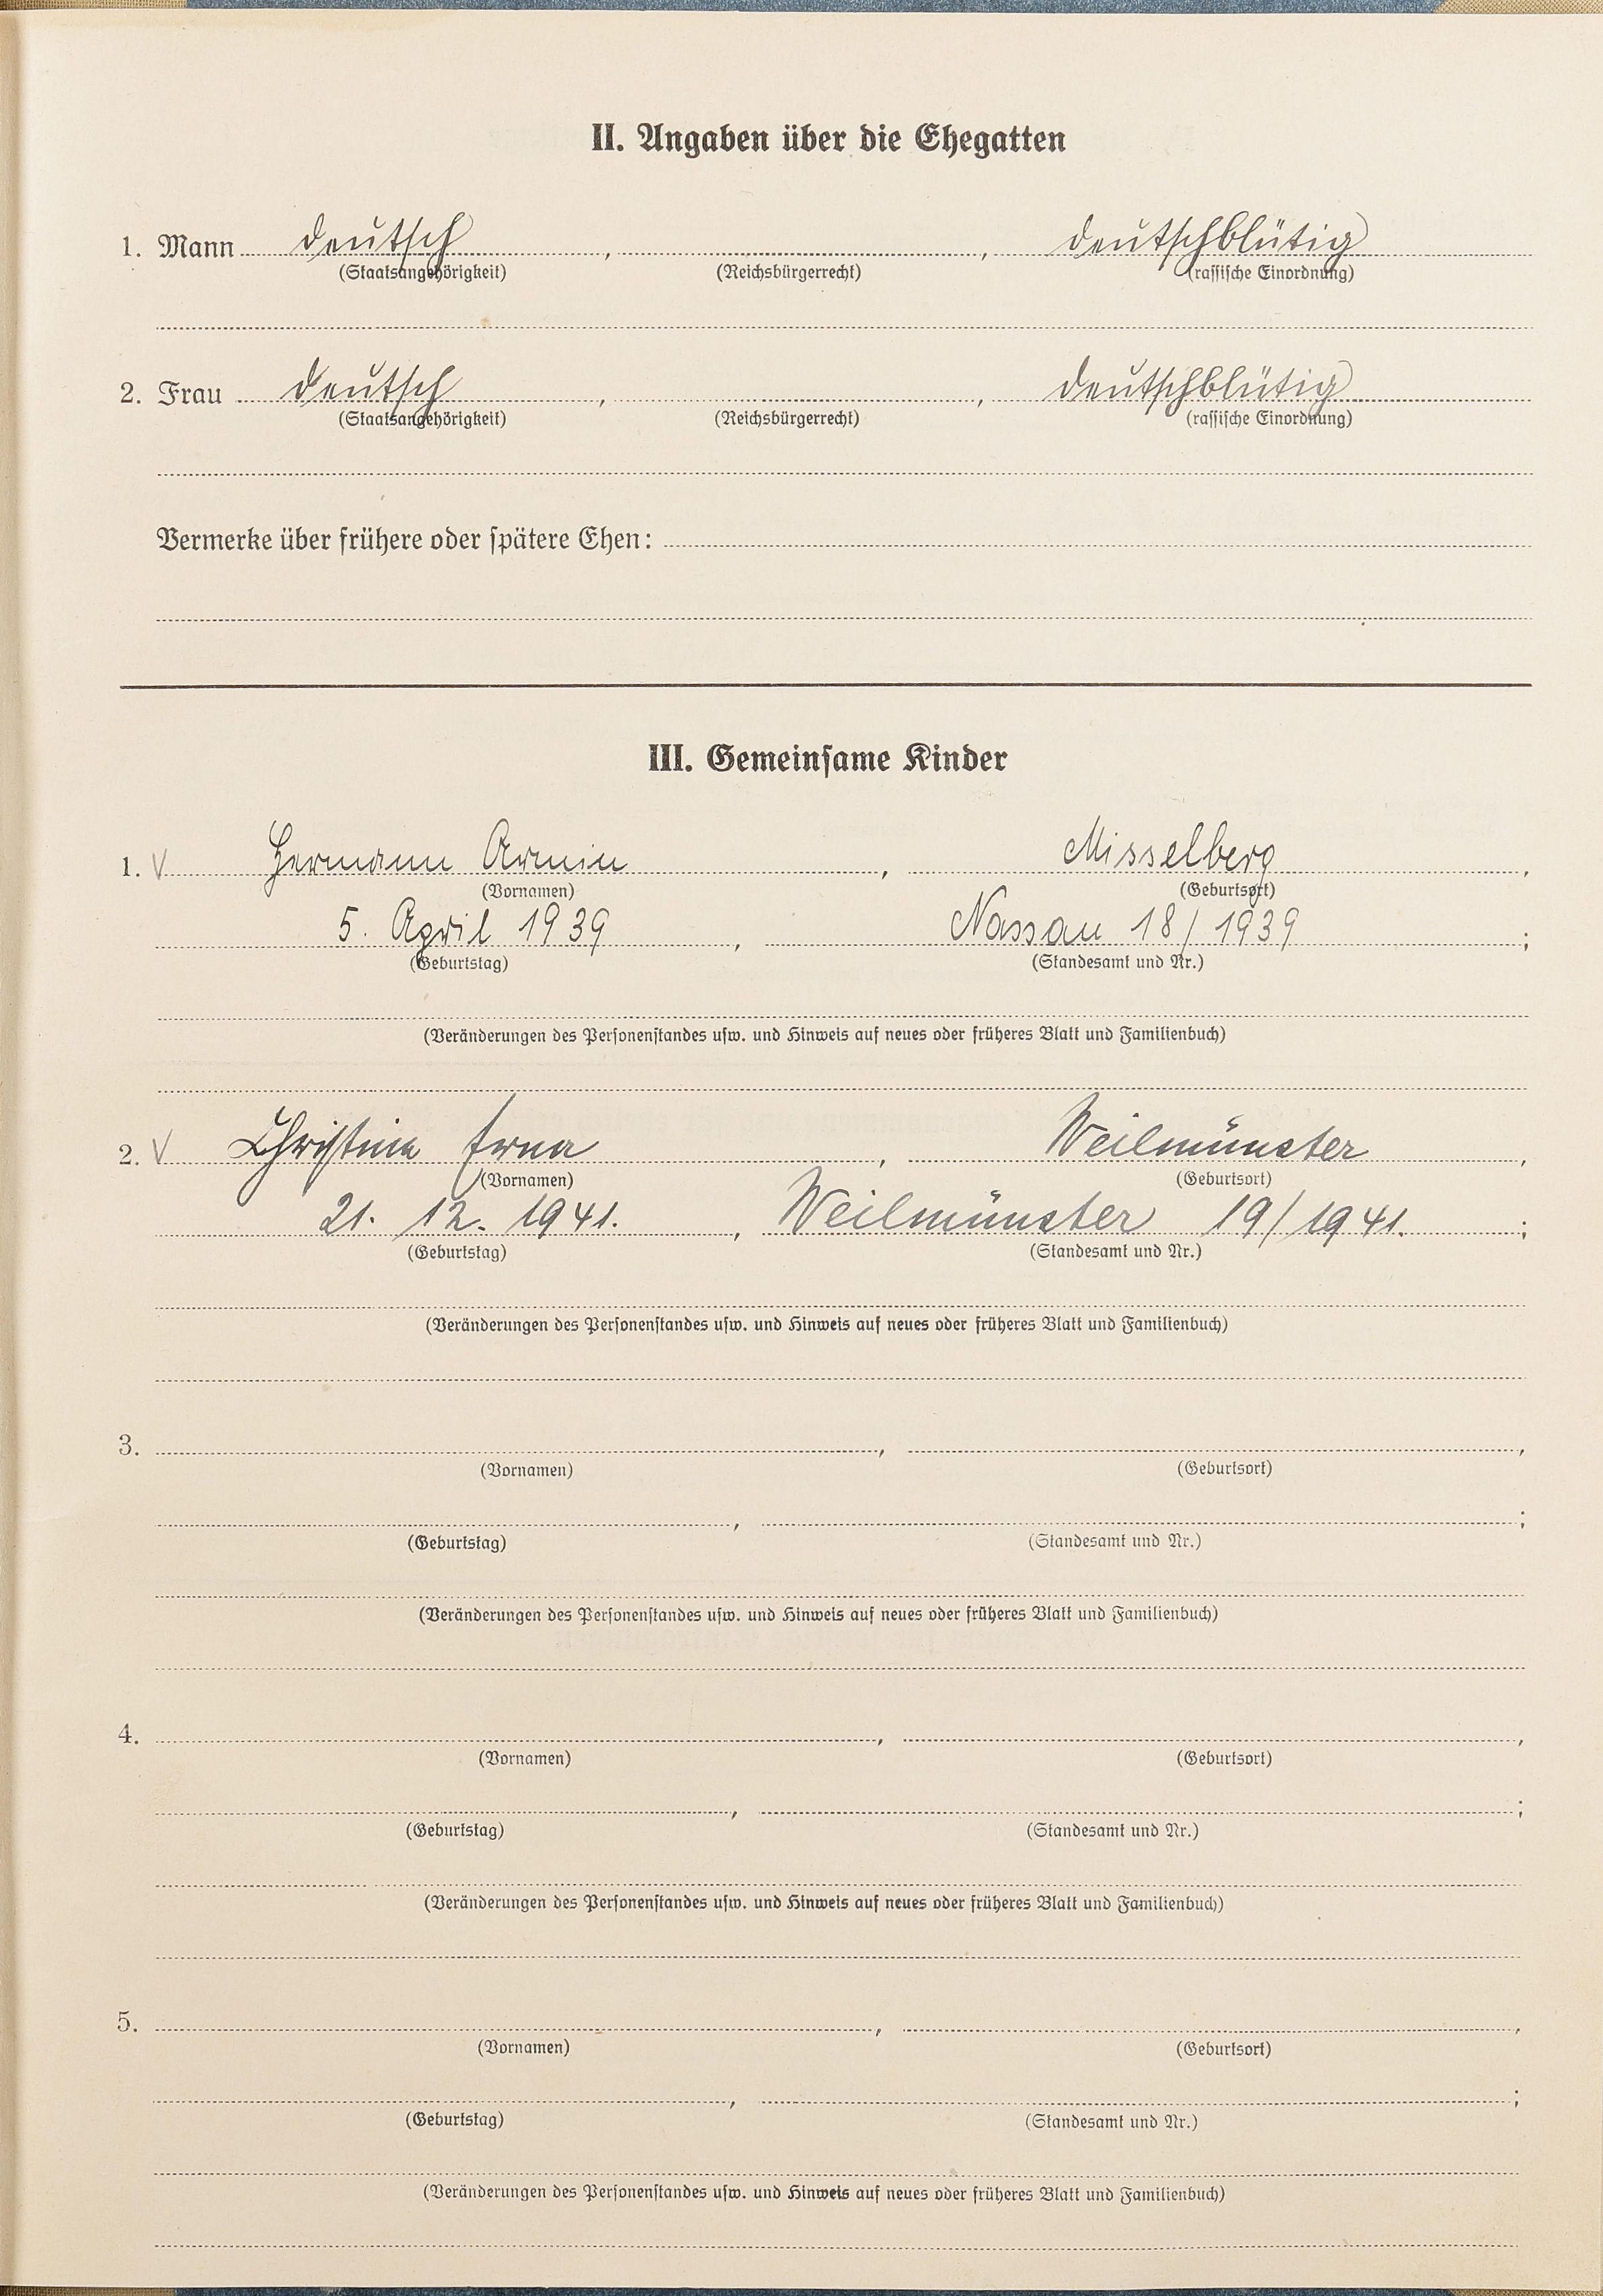 II. Angaben über die Ehegatten
1. Mann deutsch, , deutschblütig
(Staatsangehörigkeit) (Reichsbürgerrecht) (rassische Einordnung)
2. Frau deutsch, , deutschblütig
(Staatsangehörigkeit) (Reichsbürgerrecht) (rassische Einordnung)
Vermerke über frühere oder spätere Ehen:
III. Gemeinsame Kinder
1. V Hermann Armin, Misselberg,
(Vornamen) (Geburtsort)
5. April 1939, Nassau 18/1939;
(Geburtstag) (Standesamt und Nr.)
(Veränderungen des Personenstandes usw. und Hinweis auf neues oder früheres Blatt und Familienbuch)
2. V Christina Erna, Weilmünster,
(Vornamen) (Geburtsort)
21. 12. 1941., Weilmünster 19/1941.;
(Geburtstag) (Standesamt und Nr.)
(Veränderungen des Personenstandes usw. und Hinweis auf neues oder früheres Blatt und Familienbuch)
3. , ,
(Vornamen) (Geburtsort)
, ;
(Geburtstag) (Standesamt und Nr.)
(Veränderungen des Personenstandes usw. und Hinweis auf neues oder früheres Blatt und Familienbuch)
4. , ,
(Vornamen) (Geburtsort)
, ;
(Geburtstag) (Standesamt und Nr.)
(Veränderungen des Personenstandes usw. und Hinweis auf neues oder früheres Blatt und Familienbuch)
5. , ,
(Vornamen) (Geburtsort)
, ;
(Geburtstag) (Standesamt und Nr.)
(Veränderungen des Personenstandes usw. und Hinweis auf neues oder früheres Blatt und Familienbuch)